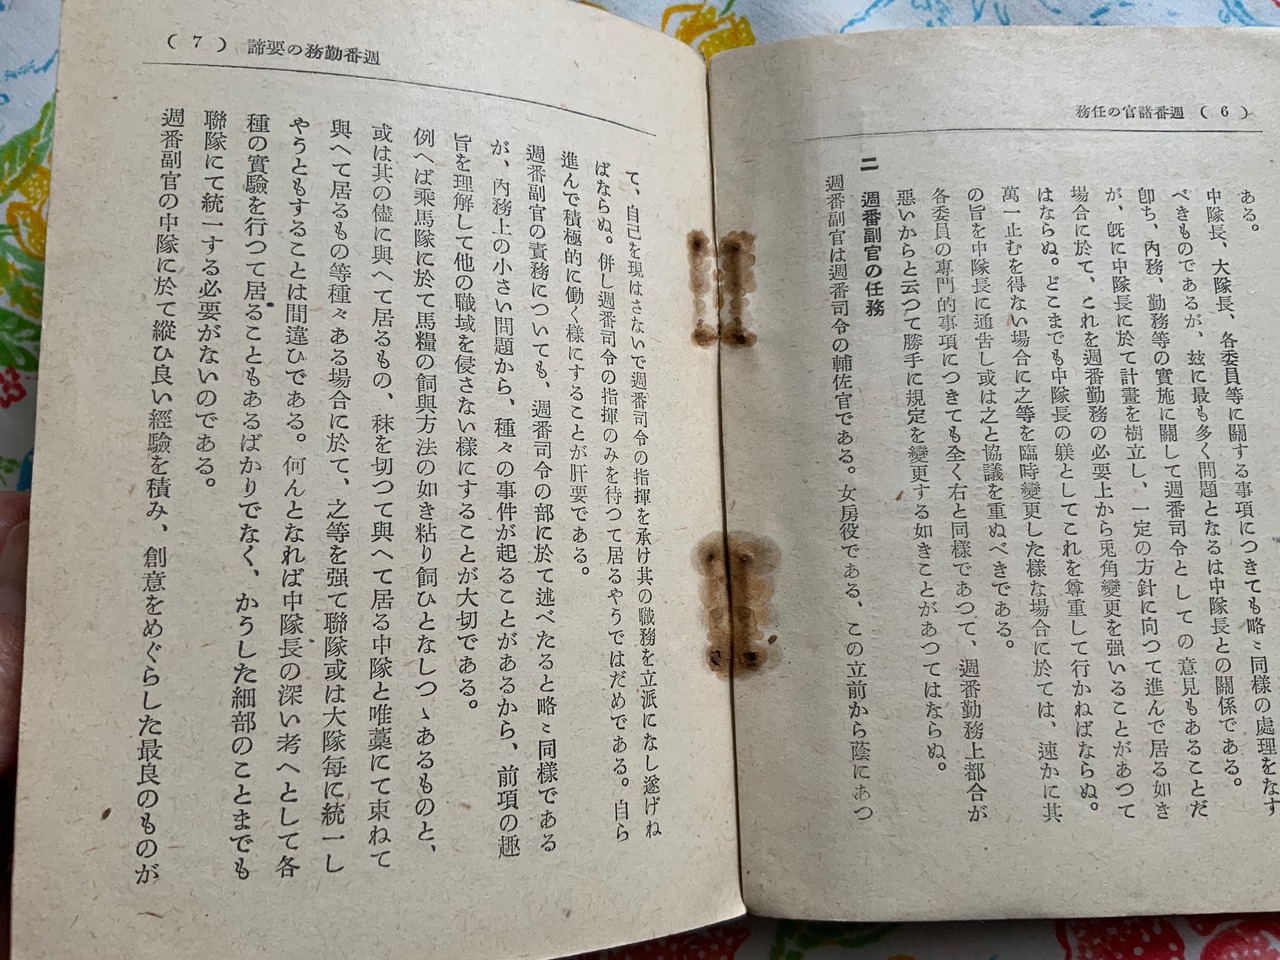 週番諸官の任務 ( 6 )
ある。
中隊長、大隊長、各委員等に關する事項につきても略〻同樣の處理をなす
べきものであるが、玆に最も多く問題となるは中隊長との關係である。
卽ち、內務、勤務等の實施に關して週番司令としての意見もあることだ
が、旣に中隊長に於て計畫を樹立し、一定の方針に向つて進んで居る如き
場合に於て、これを週番勤務の必要上から兎角變更を强いることがあつて
はならぬ。どこまでも中隊長の躾としてこれを尊重して行かねばならぬ。
萬一止むを得ない場合に之等を臨時變更した樣な場合に於ては、速かに其
の旨を中隊長に通告し或は之と協議を重ぬべきである。
各委員の專門的事項につきても全く右と同樣であつて、週番勤務上都合が
惡いからと云つて勝手に規定を變更する如きことがあつてはならぬ。
二 週番副官の任務
週番副官は週番司令の輔佐官である。女房役である、この立前から蔭にあつ
週番勤務の要諦 ( 7 )
て、自己を現はさないで週番司令の指揮を承け其の職務を立派になし遂げね
ばならぬ。併し週番司令の指揮のみを待つて居るやうではだめである。自ら
進んで積極的に働く樣にすることが肝要である。
週番副官の責務についても、週番司令の部に於て述べたると略〻同樣である
が、內務上の小さい問題から、種々の事件が起ることがあるから、前項の趣
旨を理解して他の職域を侵さない樣にすることが大切である。
例へば乘馬隊に於て馬糧の飼與方法の如き粘り飼ひとなしつゝあるものと、
或は其の儘に與へて居るもの、秣を切つて與へて居る中隊と唯藁にて束ねて
與へて居るもの等種々ある場合に於て、之等を强て聯隊或は大隊每に統一し
やうともすることは間違ひである。何んとなれば中隊長の深い考へとして各
種の實驗を行つて居ることもあるばかりでなく、かうした細部のことまでも
聯隊にて統一する必要がないのである。
週番副官の中隊に於て縱ひ良い經驗を積み、創意をめぐらした最良のものが